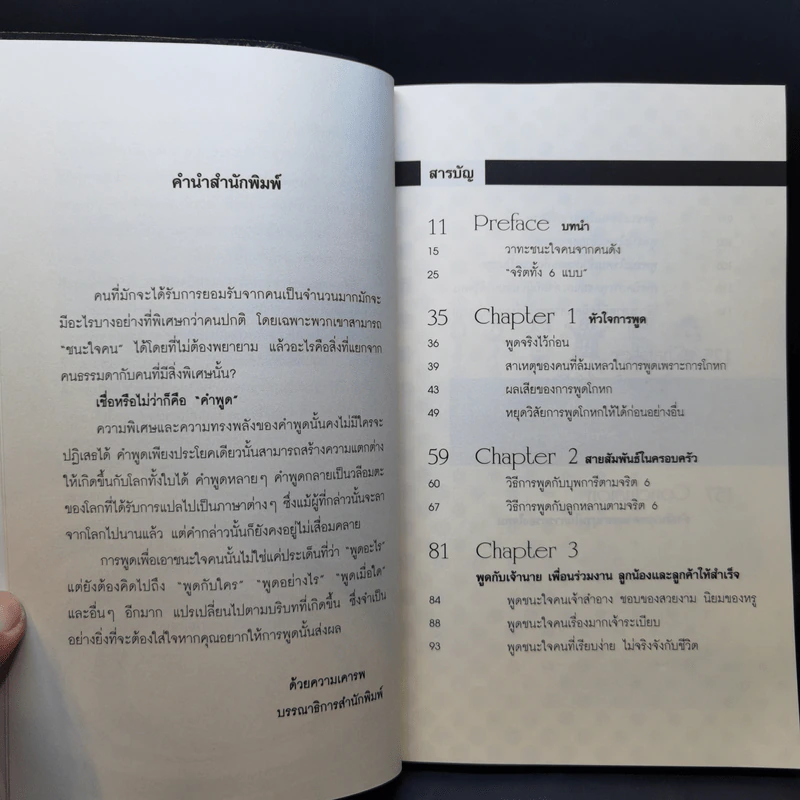 คำนำสำนักพิมพ์
คนที่มักจะได้รับการยอมรับจากคนเป็นจำนวนมากมักจะ
มีอะไรบางอย่างที่พิเศษกว่าคนปกติ โดยเฉพาะพวกเขาสามารถ
“ชนะใจคน” ได้โดยที่ไม่ต้องพยายาม แล้วอะไรคือสิ่งที่แยกจาก
คนธรรมดากับคนที่มีสิ่งพิเศษนั้น?
เชื่อหรือไม่ว่าก็คือ “คำพูด”
ความพิเศษและความทรงพลังของคำพูดนั้นคงไม่มีใครจะ
ปฏิเสธได้ คำพูดเพียงประโยคเดียวนั้นสามารถสร้างความแตกต่าง
ให้เกิดขึ้นกับโลกทั้งใบได้ คำพูดหลายๆ คำพูดกลายเป็นวลีอมตะ
ของโลกที่ได้รับการแปลไปเป็นภาษาต่างๆ ซึ่งแม้ผู้ที่กล่าวนั้นจะลา
จากโลกไปนานแล้ว แต่คำกล่าวนั้นก็ยังคงอยู่ไม่เสื่อมคลาย
การพูดเพื่อเอาชนะใจคนนั้นไม่ใช่แค่ประเด็นที่ว่า “พูดอะไร”
แต่ยังต้องคิดไปถึง “พูดกับใคร” “พูดอย่างไร” “พูดเมื่อใด”
และอื่นๆ อีกมาก แปรเปลี่ยนไปตามบริบทที่เกิดขึ้น ซึ่งจำเป็น
อย่างยิ่งที่จะต้องใส่ใจหากคุณอยากให้การพูดนั้นส่งผล
ด้วยความเคารพ
บรรณาธิการสำนักพิมพ์
สารบัญ
11 Preface บทนำ
15 วาทะชนะใจคนจากคนดัง
25 “จริตทั้ง 6 แบบ”
35 Chapter 1 หัวใจการพูด
36 พูดจริงไว้ก่อน
39 สาเหตุของคนที่ล้มเหลวในการพูดเพราะการโกหก
43 ผลเสียของการพูดโกหก
49 หยุดวิสัยการพูดโกหกให้ได้ก่อนอย่างอื่น
59 Chapter 2 สายสัมพันธ์ในครอบครัว
60 วิธีการพูดกับบุพการีตามจริต 6
67 วิธีการพูดกับลูกหลานตามจริต 6
81 Chapter 3
พูดกับเจ้านาย เพื่อนร่วมงาน ลูกน้องและลูกค้าให้สำเร็จ
84 พูดชนะใจคนเจ้าสำอาง ชอบของสวยงาม นิยมของหรู
88 พูดชนะใจคนเรื่องมากเจ้าระเบียบ
93 พูดชนะใจคนที่เรียบง่าย ไม่จริงจังกับชีวิต